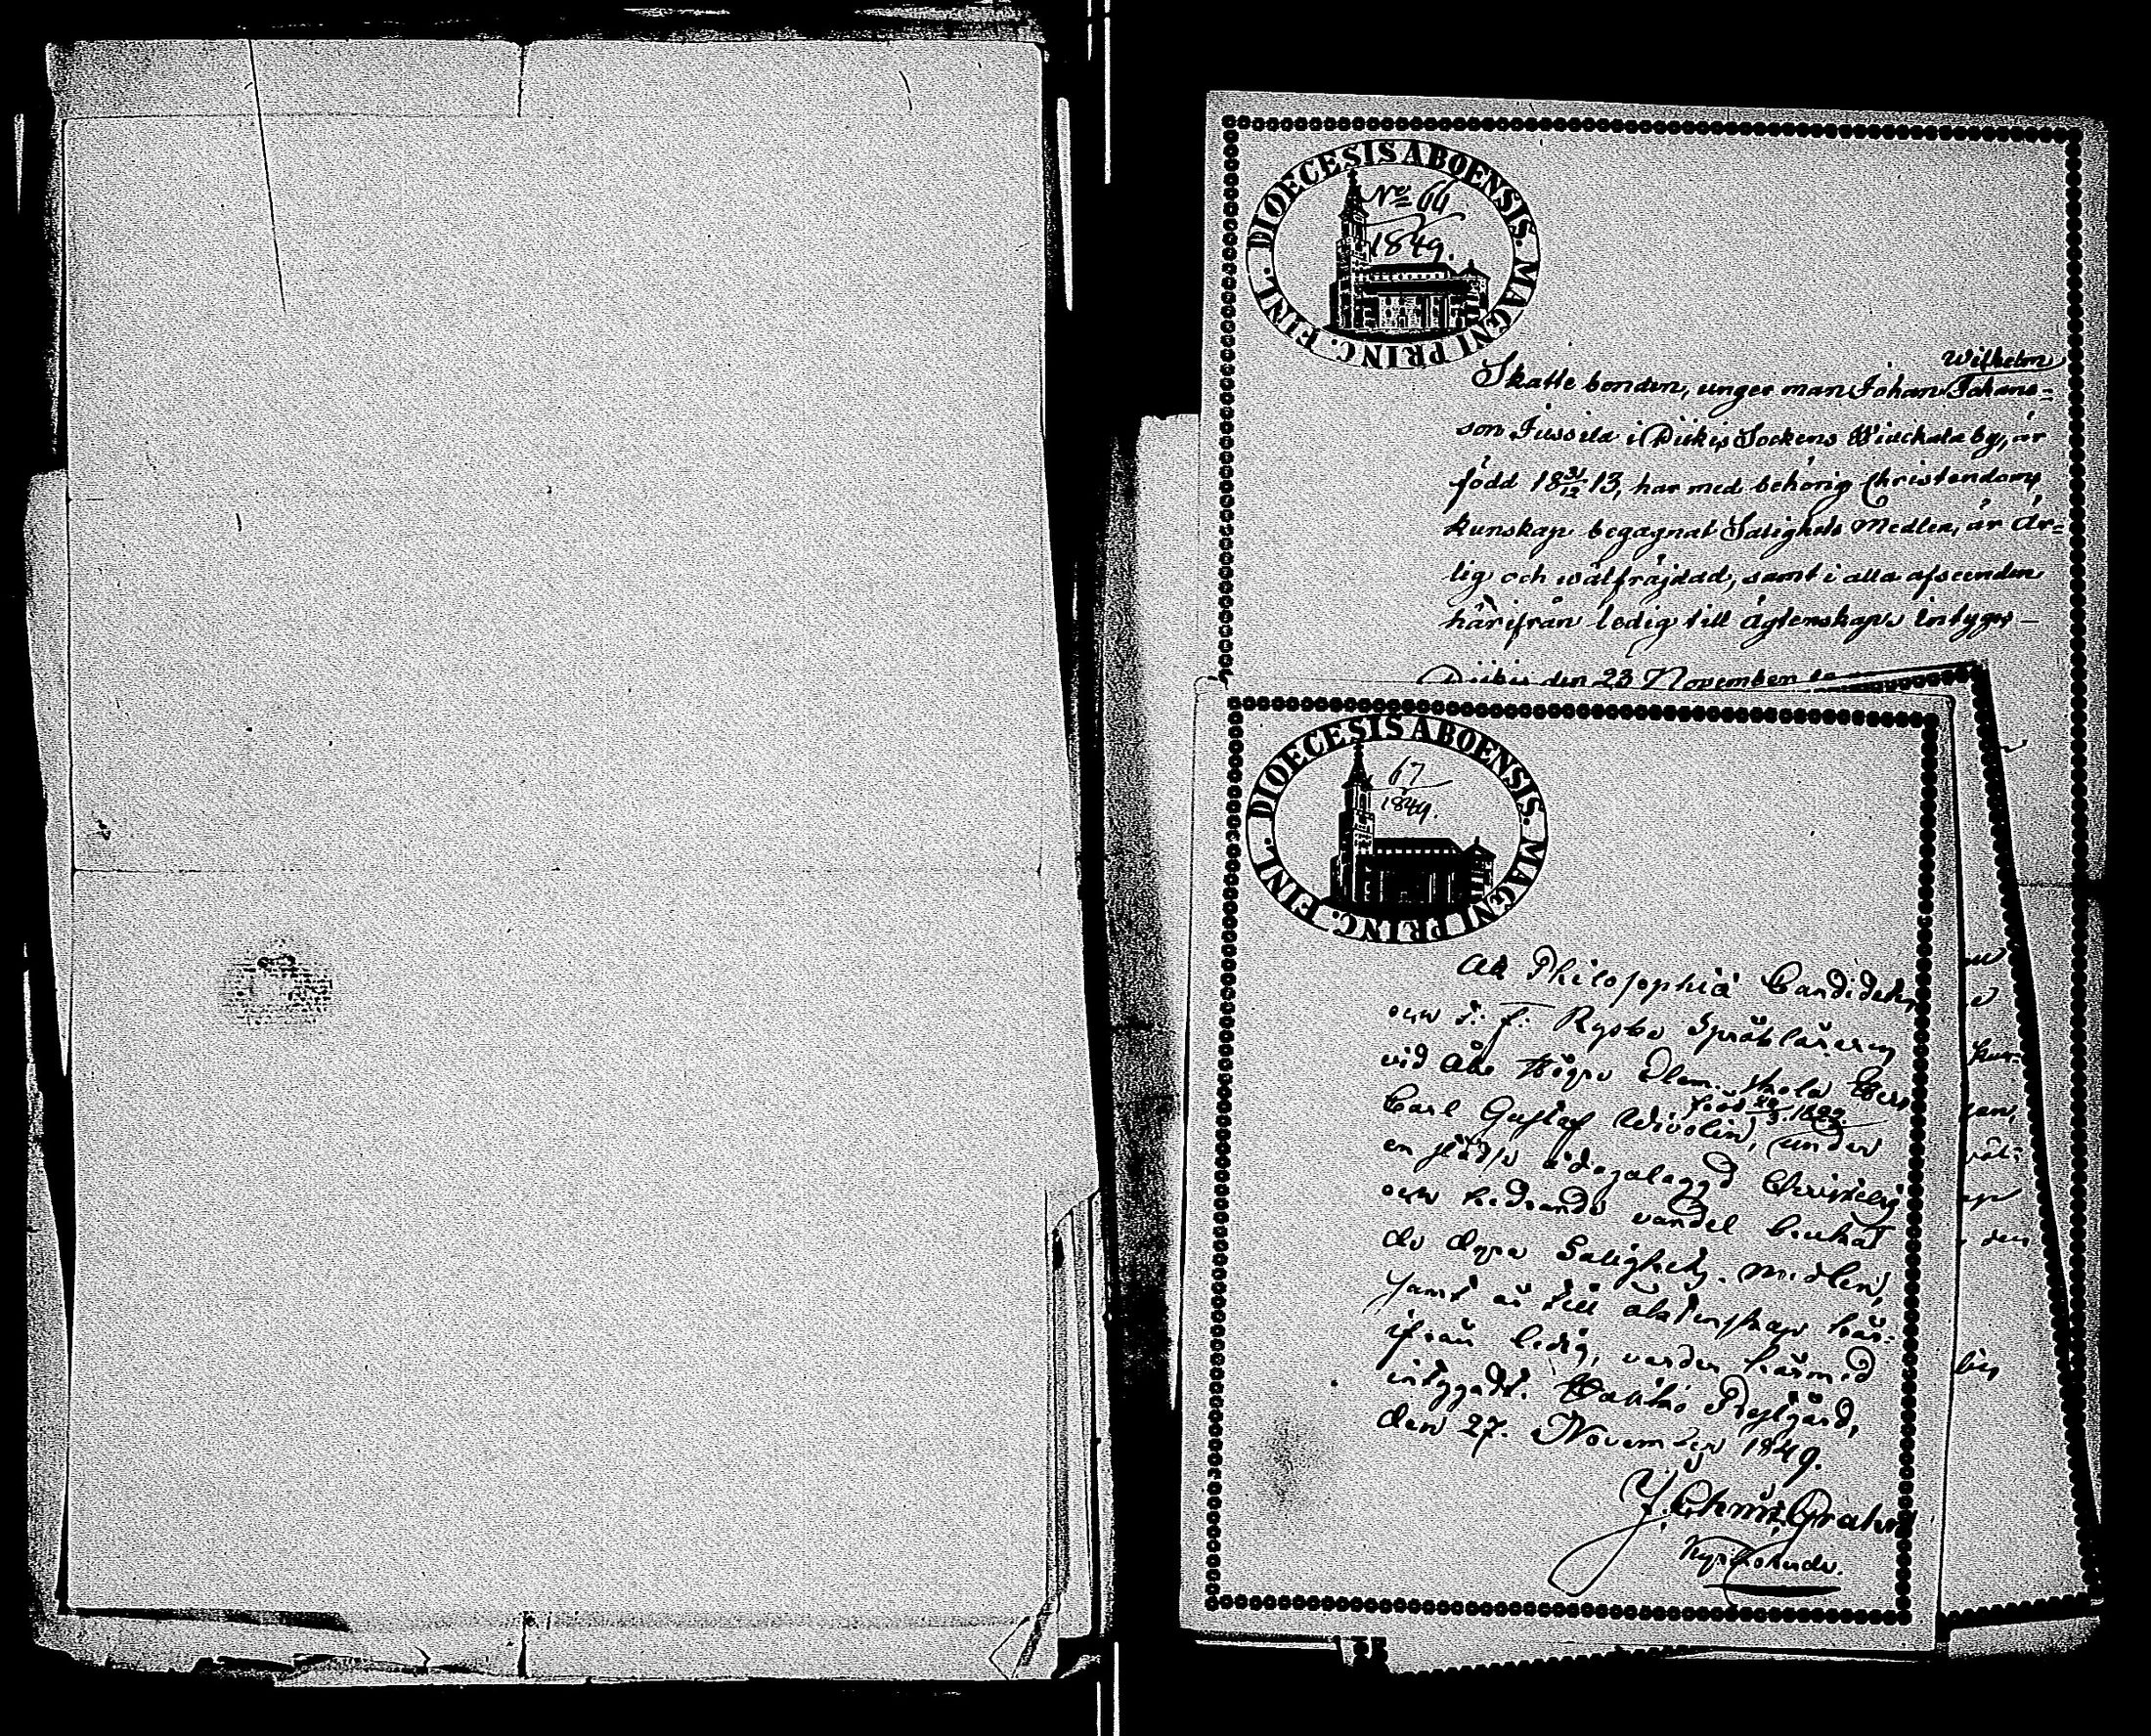 DIOECESIS ABOENSIS. MAGNI PRINC. FINL.
No 66
1849.
Wilhelm
Skatte bonden, unger man Johan Johans=
son Jussila i Piikis Sockens Wiuckala by, är
född 18 31/12 13, har med behörig Christendoms
kunskap begagnat Salighets Medlen, är Är=
lig och wälfräjdad, samt i alla afseenden
härifrån ledig till Ägtenskap; intygas –
Piikis den 23 November
DIOECESIS ABOENSIS. MAGNI PRINC. FINL.
67
1849.
At Philosophiä Candidaten
och t: f: Ryska Språkläraren
vid Åbo Högre Elem. skola Herr
född 1822.
Carl Gustaf Wivolin, under
en städse ådagalagd Christelig
och hedrande vandel brukat
de dyra Salighets-medlen,
samt är till äktenskap här-
ifrån ledig, varder härmed
intygadt. Prestgård,
den 27. November 1849.
J. Ehrnr. Grahn
Kyrkoherde.